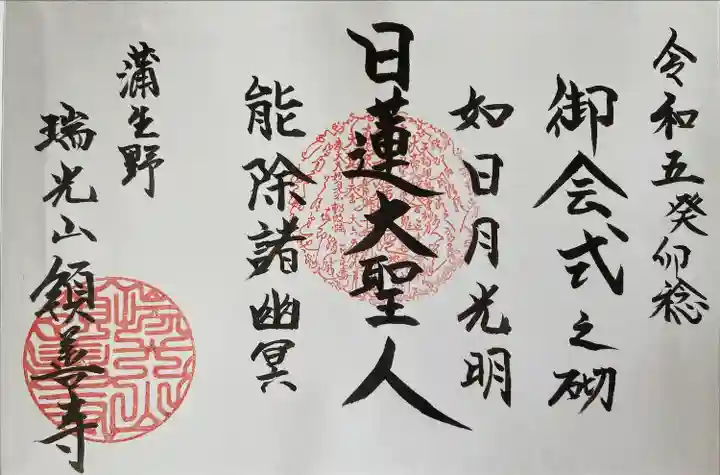 令和五癸卯稔
御会式之砌
如日月光明
日蓮大聖人
能除諸幽冥
蒲生野
瑞光山 願善寺